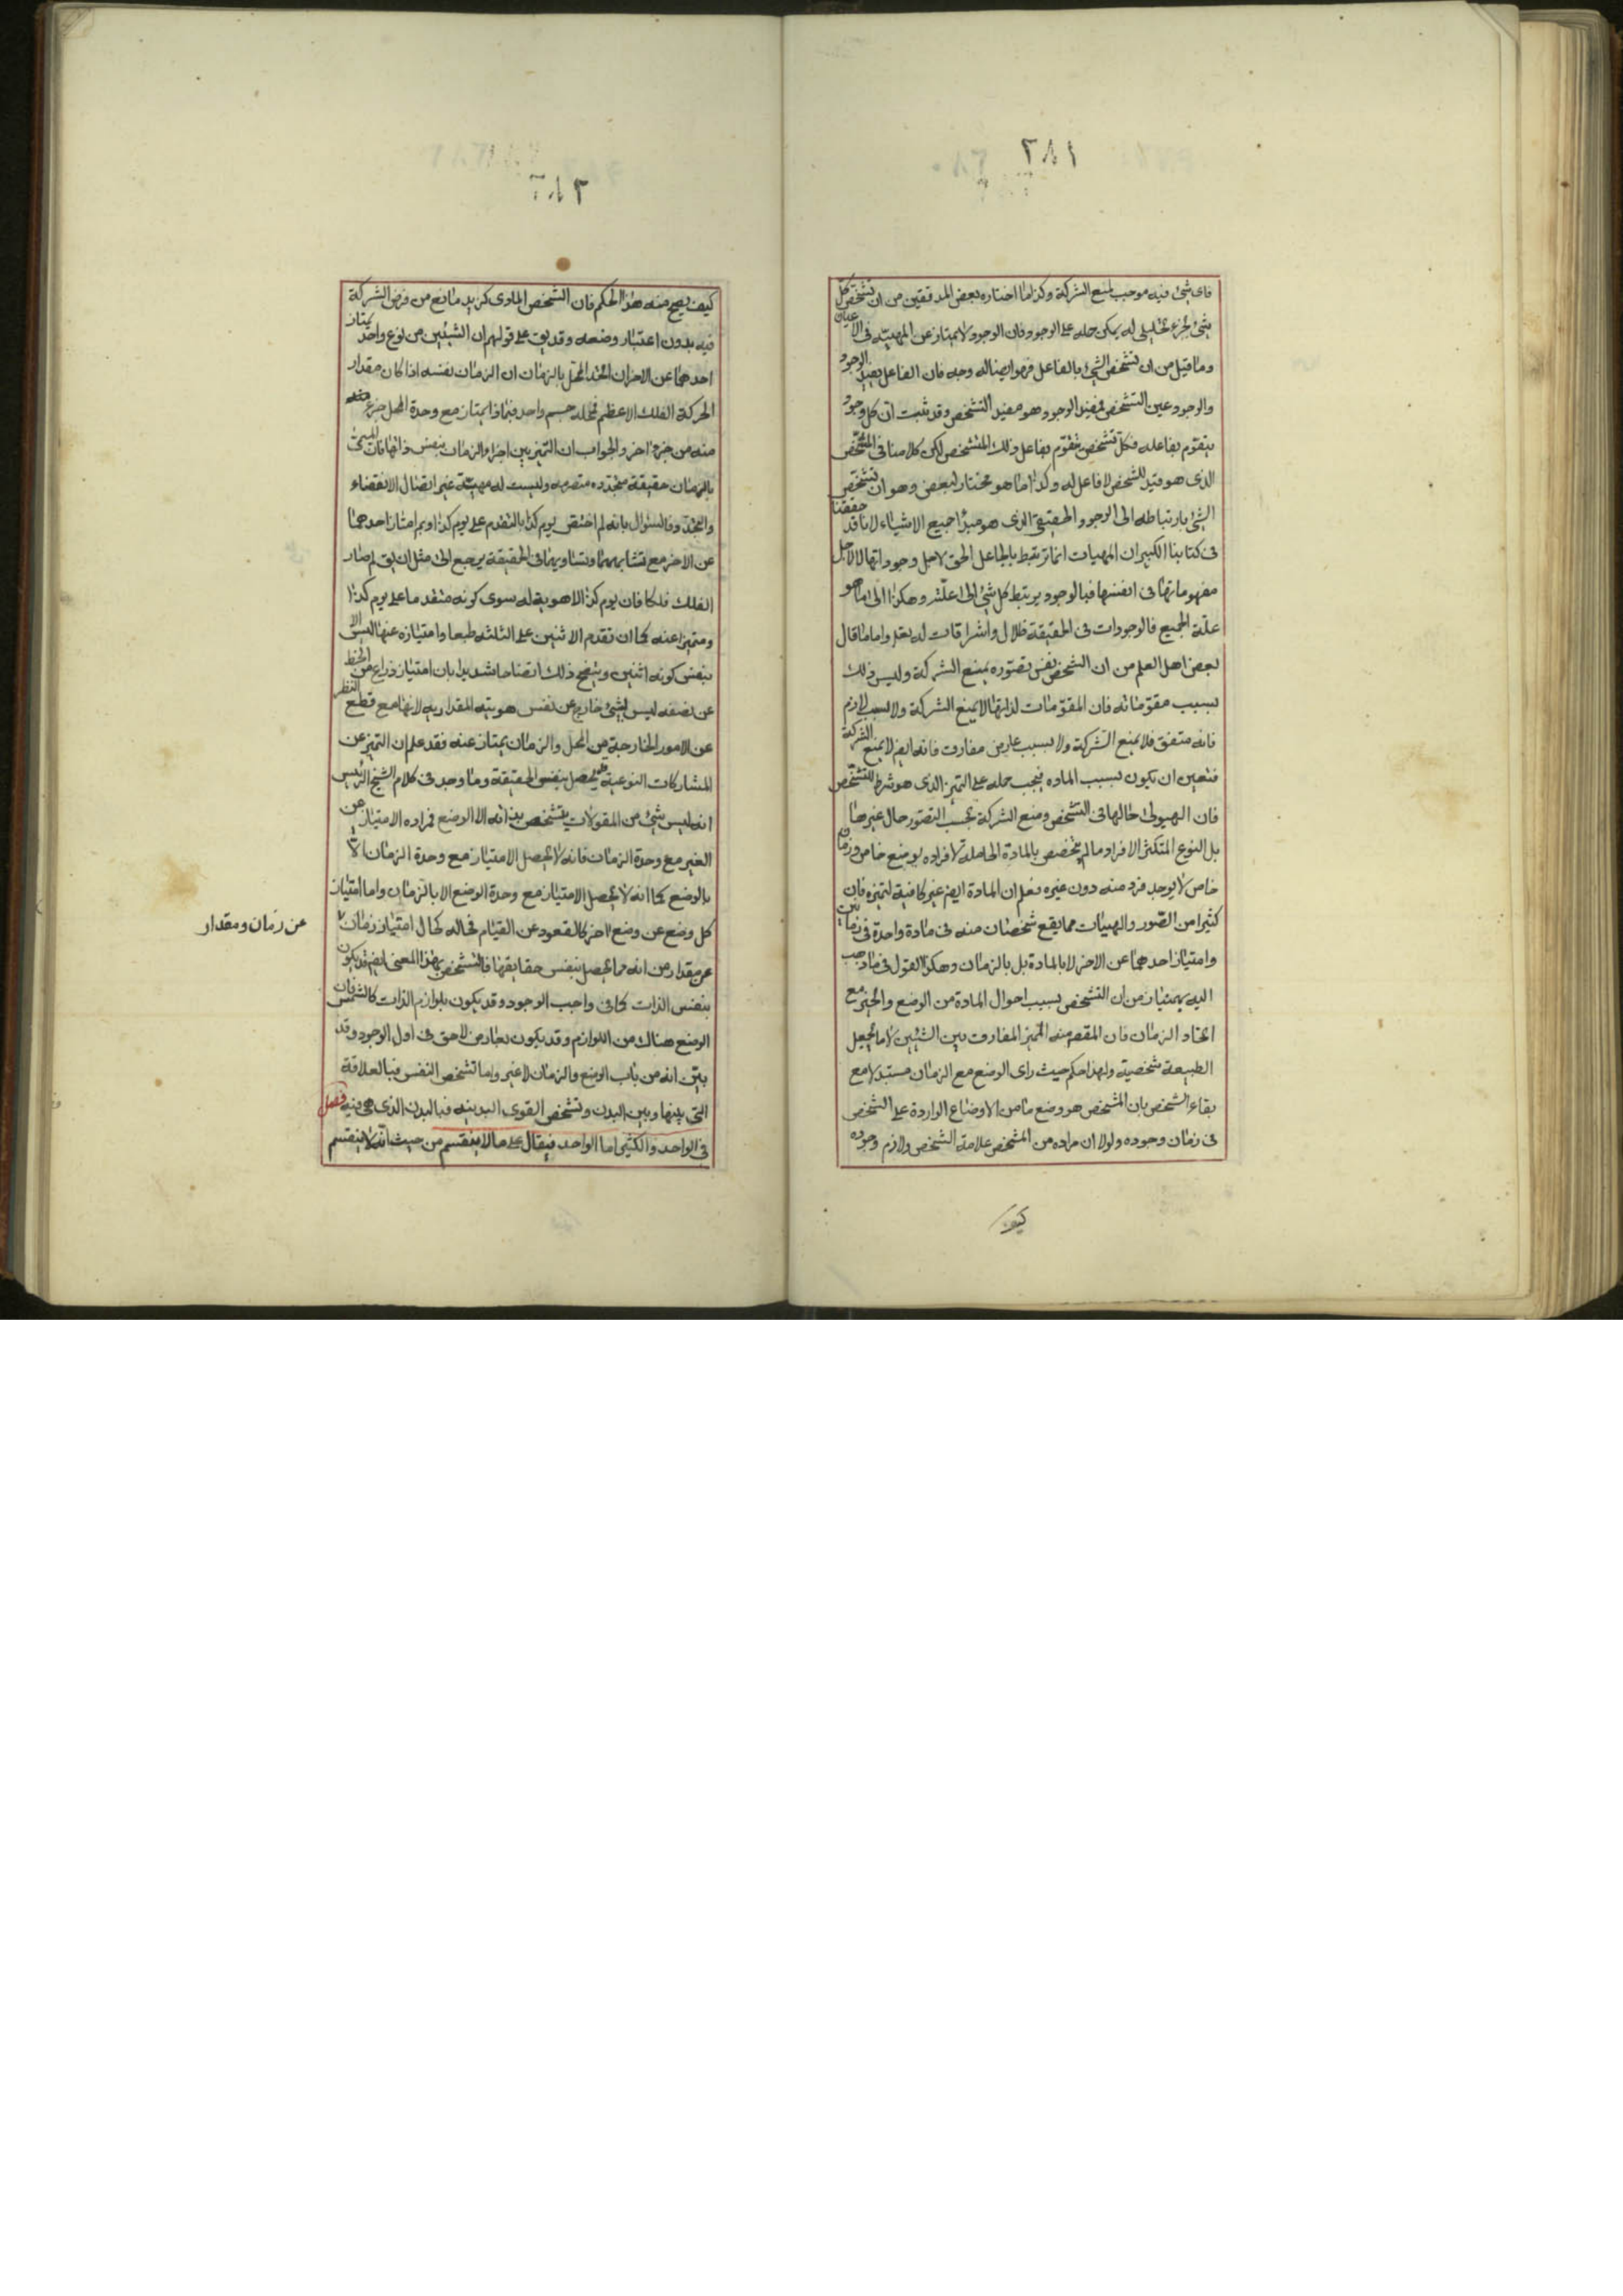 ٢٨١
فاى شئ فيه موجب لمنع الشركة وكذا ما اختاره بعض المدققين من ان تشخص كل
شئ بجزء تحليلى له يمكن حمله على الوجود فان الوجود لا يمتاز عن المهيته فى الاعيان
وما قيل من ان تشخص الشئ بالفاعل فهو ايضا له وجه فان الفاعل يفيد الوجود
والوجود عين التشخص فمفيد الوجود هو مفيد التشخص وقد ثبت ان كل وجود
يتقوم بفاعله فكل تشخص يتقوم بفاعل ذلك المتشخص لكن كلامنا فى المشخص
الذى هو قيد للشخص لا فاعل له وكذا ما هو مختار لبعض وهو ان تشخص
الشئ بارتباطه الى الوجود الحقيقى الذى هو مبدأ جميع الاشياء لانا قد حققنا
فى كتابنا الكبير ان المهيات انما ترتبط بالجاعل الحق لاجل وجوداتها لا لاجل
مفهوماتها فى انفسها فبالوجود يرتبط كل شئ الى علته وهكذا الى ما هو
علة الجميع فالوجودات فى الحقيقة ظلال واشراقات له تعلم واما ما قال
بعض اهل العلم من ان الشخص نفس تصوره يمنع الشركة وليس ذلك
بسبب مقوماته فان المقومات لذاتها لا يمنع الشركة ولا بسبب لازم
فانه متفق فلا يمنع الشركة ولا بسبب عارض مفارق فانه ايضا لا يمنع الشركة
فتعين ان يكون بسبب الماده فيجب حمله على التميز الذى هو شرط للتشخص
فان الهيولى حالها فى التشخص ومنع الشركة بحسب التصور حال غيرها
بل النوع المتكثر الافراد ما لم يتخصص بالمادة الحاملة لافراده بوضع خاص وزمان
خاص لا يوجد فرد منه دون غيره فعلم ان المادة ايضم غير كافية لتميزه فان
كثيرا من الصور والهيئات مما يقع شخصان منه فى مادة واحدة فى زمانين
وامتياز احدهما عن الاخر لا بالمادة بل بالزمان وهكذا القول فيما ذهب
اليه بهمنيار من ان التشخص بسبب احوال المادة من الوضع والحيز مع
اتحاد الزمان فان المقصم منه التميز المفارق بين الشيئين لا ما يجعل
الطبيعة شخصية ولهذا حكم حيث راى الوضع مع الزمان متبدلا مع
بقاء الشخص بان المشخص هو وضع ما من الاوضاع الواردة على الشخص
فى زمان وجوده ولولا ان مراده من المشخص علامة الشخص ولازم وجوده
كيف
٢٨٢
كيف يصح منه هذا الحكم فان الشخص المادى كزيد مانع من فرض الشركة
فيه بدون اعتبار وضعه وقد يق على قولهم ان الشيئين من نوع واحد يمتاز
احدهما عن الاخر ان اتحد المحل بالزمان ان الزمان نفسه اذا كان مقدار
الحركة الفلك الاعظم فمحله جسم واحد فبماذا يمتاز مع وحدة المحل جزء
منه من جزء اخر والجواب ان التميز بين اجزاء الزمان بنفس ذاتها فان المسمى
بالزمان حقيقة متجدده متصرمه وليست له مهية غير اتصال الانقضاء
والتجدد فالسؤال بانه لم اختص يوم كذا بالتقدم على يوم كذا وبم امتاز احدهما
عن الاخر مع تشابههما وتساويهما فى الحقيقة يرجع الى مثل ان يق لم صار
الفلك فلكا فان يوم كذا لا هوية له سوى كونه متقدما على يوم كذا
ومتميزا عنه كما ان تقدم الاثنين على الثلثه طبعا وامتيازه عنها ليس الا
بنفس كونه اثنين ويتضح ذلك اتضاحا شديدا بان امتياز ذراع من الخط
عن نصفه ليس بشئ خارج عن نفس هويته المقداريه لانها مع قطع النظر
عن الامور الخارجة من المحل والزمان يمتاز عنه فقد علم ان التميز عن
المشاركات النوعية قد يحصل بنفس الحقيقة وما وجد فى كلام الشيخ الرئيس
انه ليس شئ من المقولات يتشخص بذاته الا الوضع فمراده الامتياز عن
الغير مع وحدة الزمان فانه لا يحصل الامتياز مع وحدة الزمان الا
بالوضع كما انه لا يحصل الامتياز مع وحدة الوضع الا بالزمان واما امتياز
كل وضع عن وضع اخر كالقعود عن القيام فحاله كحال امتياز زمان
عن زمان ومقدار
عن مقدار من انه مما يحصل بنفس حقايقها فالتشخص بهذا المعنى ايضم قد يكون
بنفس الذات كما فى واجب الوجود وقد يكون بلوازم الذات كالشمس فان
الوضع هناك من اللوازم وقد يكون بعارض لاحق فى اول الوجود وقد
بين انه من باب الوضع والزمان لا غير واما تشخص النفس فبالعلاقة
التى بينها وبين البدن وتشخص القوى البدنيه فبالبدن الذى هى فيه فصل
فى الواحد والكثير اما الواحد فيقال على ما لا ينقسم من حيث انه لا ينقسم